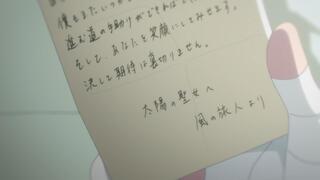 僕もまたいつか
進む道の手助けができれば
そして、あなたを笑顔にしてみせます。
決して期待は裏切りません。
太陽の聖女へ
風の旅人より